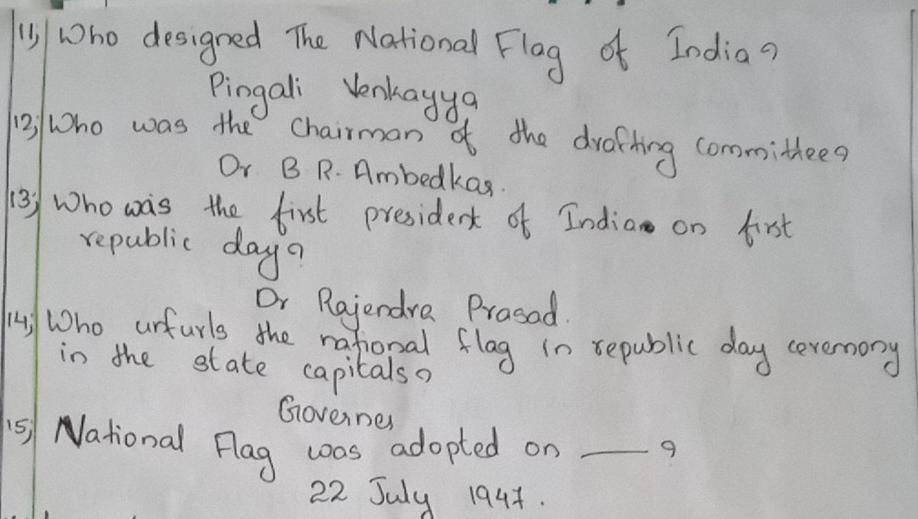 11) Who designed The National Flag of India?
Pingali Venkayya
12) Who was the Chairman of the drafting committee?
Dr B R. Ambedkar.
13) Who was the first president of India on first
republic day?
Dr Rajendra Prasad.
14) Who unfurls the national flag in republic day ceremony
in the state capitals?
Governer
15) National Flag was adopted on — ?
22 July 1947.